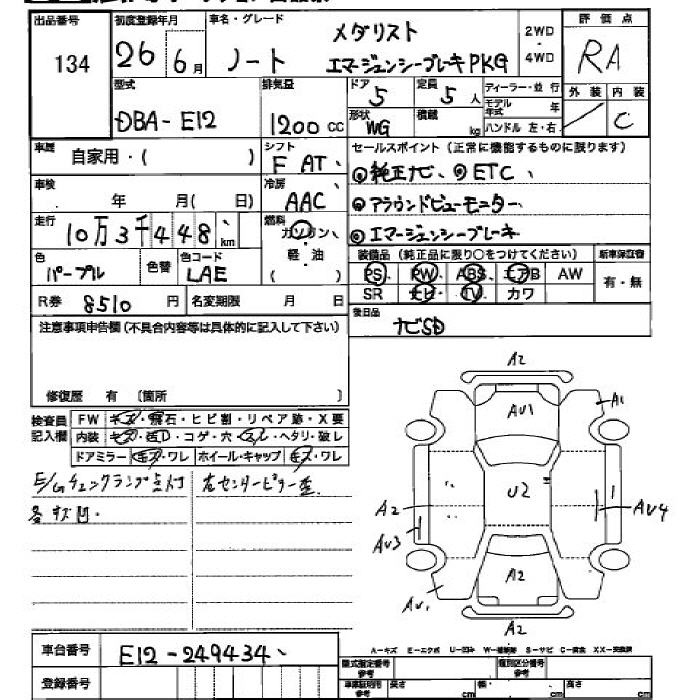 出品番号 初度登録年月 車名・グレード メダリスト 2WD・4WD 評価点
134 26 6月 ノート エマージェンシーブレーキPKG RA
型式 排気量 ドア 5 定員 5人 ディーラー・並行 外装 内装
DBA-E12 1200cc 形状 WG 積載 kg モデル年式 年 ハンドル 左・右 / C
車歴 自家用・( ) シフト F AT セールスポイント(正常に機能するものに限ります)
車検 年 月( 日) 冷房 AAC ◎純正ナビ、◎ETC、
◎アラウンドビューモニター
走行 10万3千448km 燃料 ガソリン・軽・油 ( ) ◎エマージェンシーブレーキ
色 パープル 色替 色コード LAE 装備品(純正品に限り○をつけてください) 新車保証書
PS PW ABS エアB AW 有・無
R券 8510円 名変期限 月 日 SR ナビ TV カワ
注意事項申告欄(不具合内容等は具体的に記入して下さい) 後日品 ナビSD
修復歴 有 〔箇所 〕
検査員記入欄 FW キズ・飛石・ヒビ割・リペア跡・X要
内装 キズ・・コゲ・穴・・ヘタリ・破レ
ドアミラー キズ・ワレ ホイール・キャップ キズ・ワレ
E/Gチェックランプ点灯 右センターピラー歪
各キズ凹.
A2
AU1 A1
U2
A2 AU4
AU3
A2
AU1
A2
車台番号 E12-249434
A-キズ E-エクボ U-凹み W-補修跡 S-サビ C-腐食 XX-交換済
登録番号 型式指定番号参考 類別区分番号参考
車庫証明用参考 長さ cm 幅 cm 高さ cm